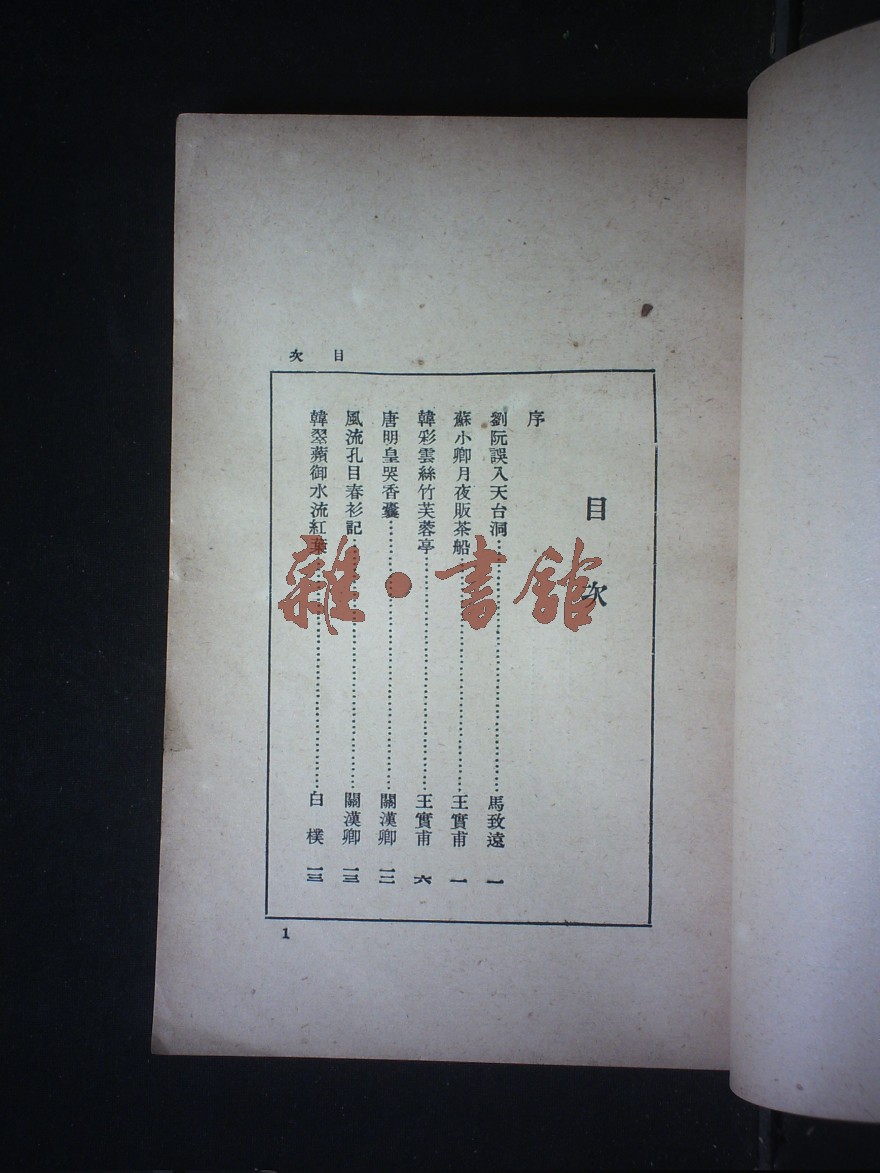 目次
目次
序
劉阮誤入天台洞……馬致遠 一
蘇小卿月夜販茶船……王實甫 一
韓彩雲絲竹芙蓉亭……王實甫 六
唐明皇哭香囊……關漢卿 一二
風流孔目春衫記……關漢卿 一三
韓翠蘋御水流紅葉……白樸 一三
1
雜·書館